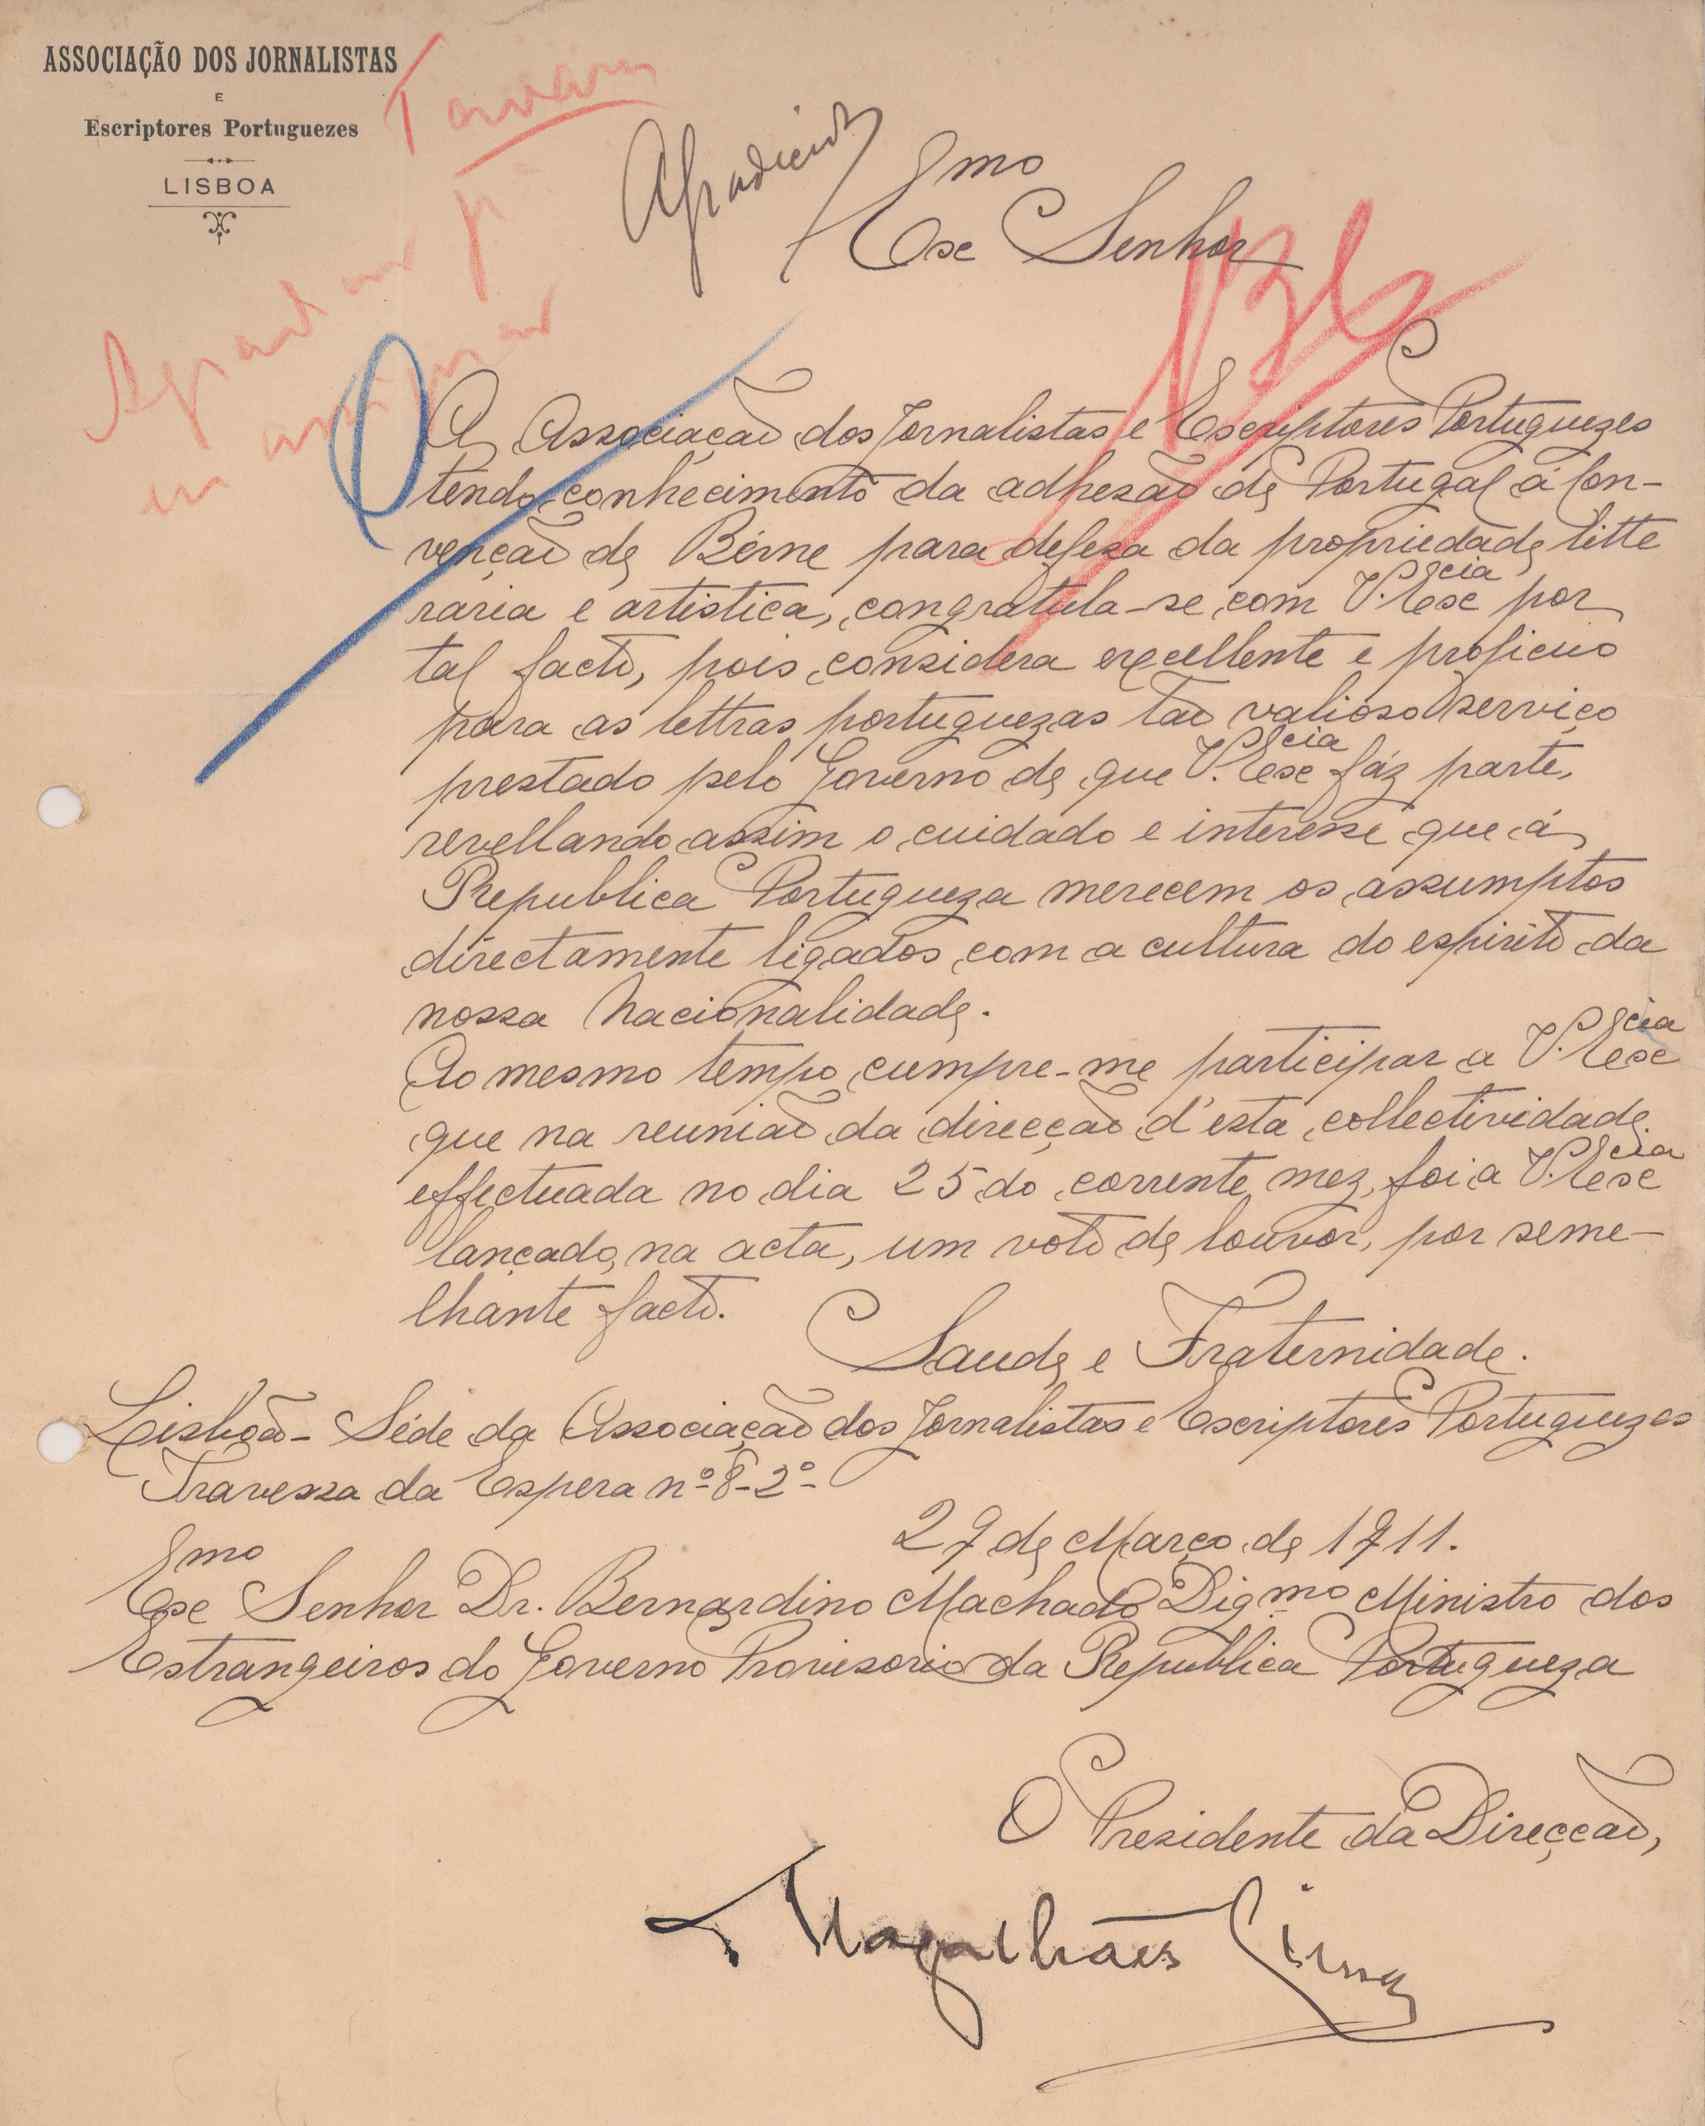 ASSOCIAÇÃO DOS JORNALISTAS
E
Escriptores Portuguezes
LISBOA
Exmo Senhor
A Associação dos Jornalistas e Escriptores Portuguezes
tendo conhecimento da adhesão de Portugal á Con-
venção de Bérne para defeza da propriedade litte
raria e artistica, congratula-se com V. Excia por
tal facto, pois considera excellente e proficuo
para as lettras portuguezas tão valioso serviço
prestado pelo Governo de que V. Excia fáz parte,
revellando assim o cuidado e interesse que á
Republica Portugueza merecem os assumptos
directamente ligados com a cultura do espirito da
nossa Nacionalidade.
Ao mesmo tempo cumpre-me participar a V. Excia
que na reunião da direcção d'esta collectividade
effectuada no dia 25 do corrente mez, foi a V. Excia
lançado, na acta, um voto de louvor, por seme-
lhante facto.
Saude e Fraternidade.
Lisboa - Séde da Associação dos Jornalistas e Escriptores Portuguezes
Travessa da Espera nº 8-2º-
27 de Março de 1911.
Exmo Senhor Dr. Bernardino Machado Digmo Ministro dos
Estrangeiros do Governo Provisorio da Republica Portugueza
O Presidente da Direcção,
Magalhães Lima